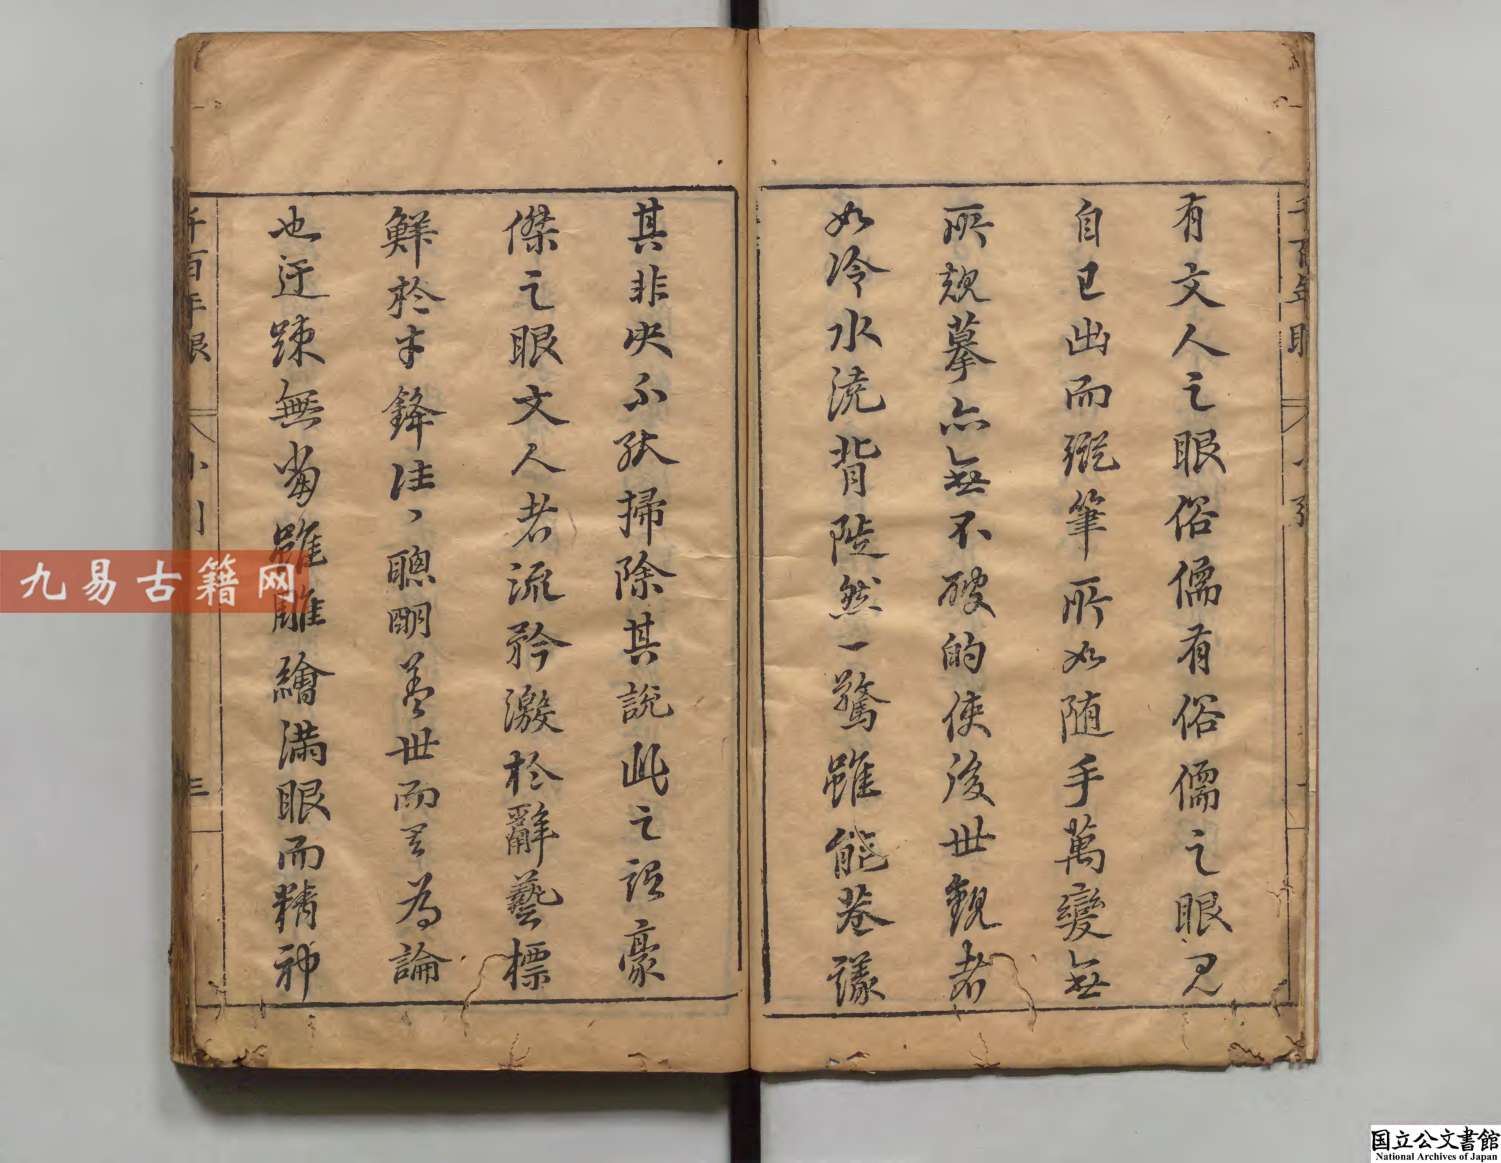 有文人之眼俗儒有俗儒之眼見
自已出而縱筆所如随手萬變無
所規摹亦無不破的使後世觀者
如冷水澆背陡然一驚雖能巻議
其非决不能掃除其說此之謂豪
傑之眼文人者流矜激於辭藝標
鮮於才鋒往、聰明盖世而不為論
也迂踈無當雖雕繪満眼而精神
千百年眼
小引
三
九易古籍网
国立公文書館
National Archives of Japan